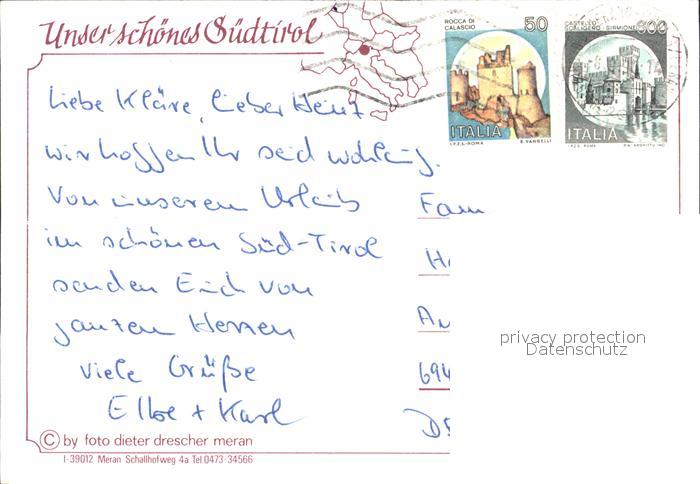 Unser schönes Südtirol
ROCCA DI
CALASCIO
50
ITALIA
I.P.Z.S.-ROMA E. VANGELLI
CASTELLO
SCALIGERO - SIRMIONE
ITALIA
I.P.Z.S. ROMA
Liebe Kläre, lieber Heinz
wir hoffen Ihr seid wohlauf.
Von unserem Urlaub
im schönen Süd-Tirol
senden Euch von
ganzem Herzen
viele Grüße
+ Karl
Fam
H
An
694
privacy protection
Datenschutz
© by foto dieter drescher meran
I-39012 Meran Schallhofweg 4a Tel.0473-34566